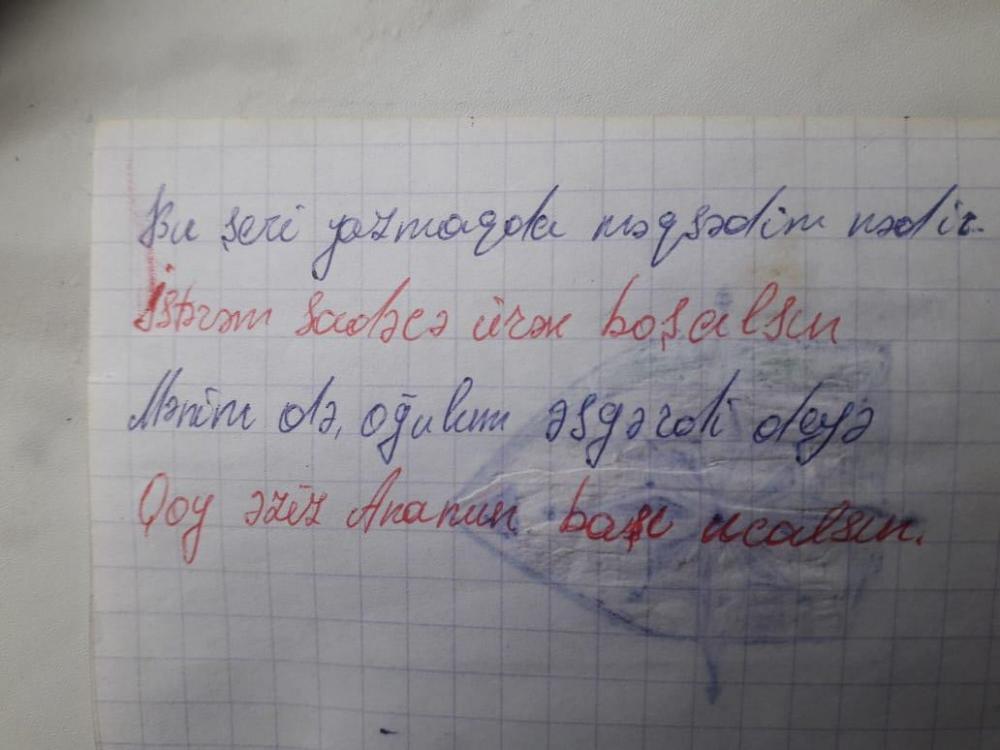 Bu şeri yazmaqda məqsədim nədir.
İstərəm sadəcə ürək boşalsın
Mənim də, oğulum əsgərdi deyə
Qoy əziz Ananın başı ucalsın.